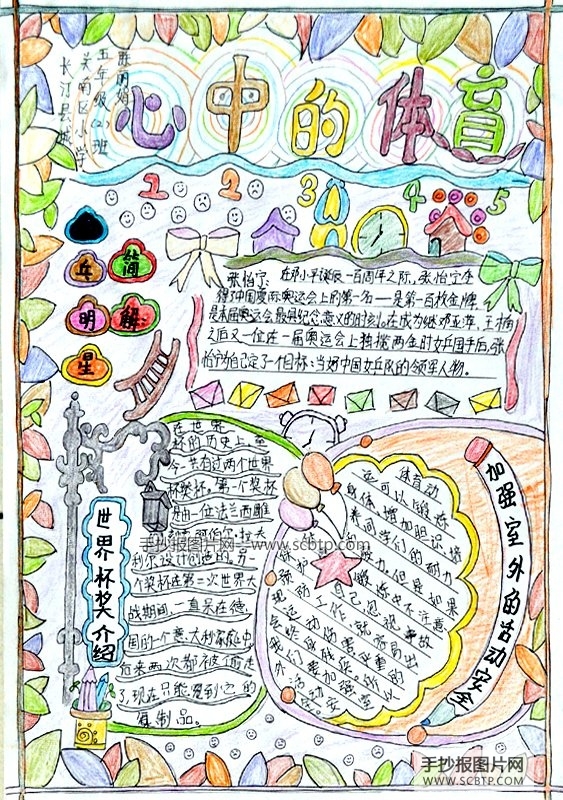 陈丽娟
五年级(2)班
关南区小学
长汀县城
心中的体育
1 2 3 4 5
乒
明
星
简
解:
张怡宁: 在邓小平诞辰一百周年之际,张怡宁夺
得了中国夏际奥运会上的第一名——是第一百枚金牌,
是本届奥运会最具纪念意义的时刻,在成为继邓亚萍、王楠
之后又一位在一届奥运会上独揽两金的女乒国手后,张
怡宁为自己定了一个目标:当好中国女乒队的领军人物。
世界杯奖介绍
在世界
杯的历史上,至
今共有过两个世界
杯奖杯。第一个奖杯
是由一位法兰西雕
刻家阿伯尔·拉夫
利尔设计创造的。另
个奖杯在第二次世界大
战期间,一直呆在德
国的一个意大利家庭中
后来两次都被偷走
了,现在只能看到它的
复制品。
加强室外的活动安全
体育动
还可以锻炼
身体,增加胆识,培
养同学们的耐力
毅力。但是如果
自己
锻炼时不注意
就容易出
运动的
所以
我们要加强室
外活动安
手抄报图片网 www.scbtp.com
手抄报图片网
WWW.SCBTP.COM